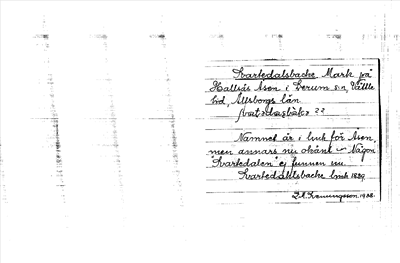 Svartedalsbacke Mark på
Hallsås åsen i Lerum sn, Vättle
hd, Älvsborgs län
Namnet är i bruk för åsen,
men annars nu okänt – Någon
"Svartedalen" ej funnen nu.
Svartedahlsbacke bruk 1829
1938.